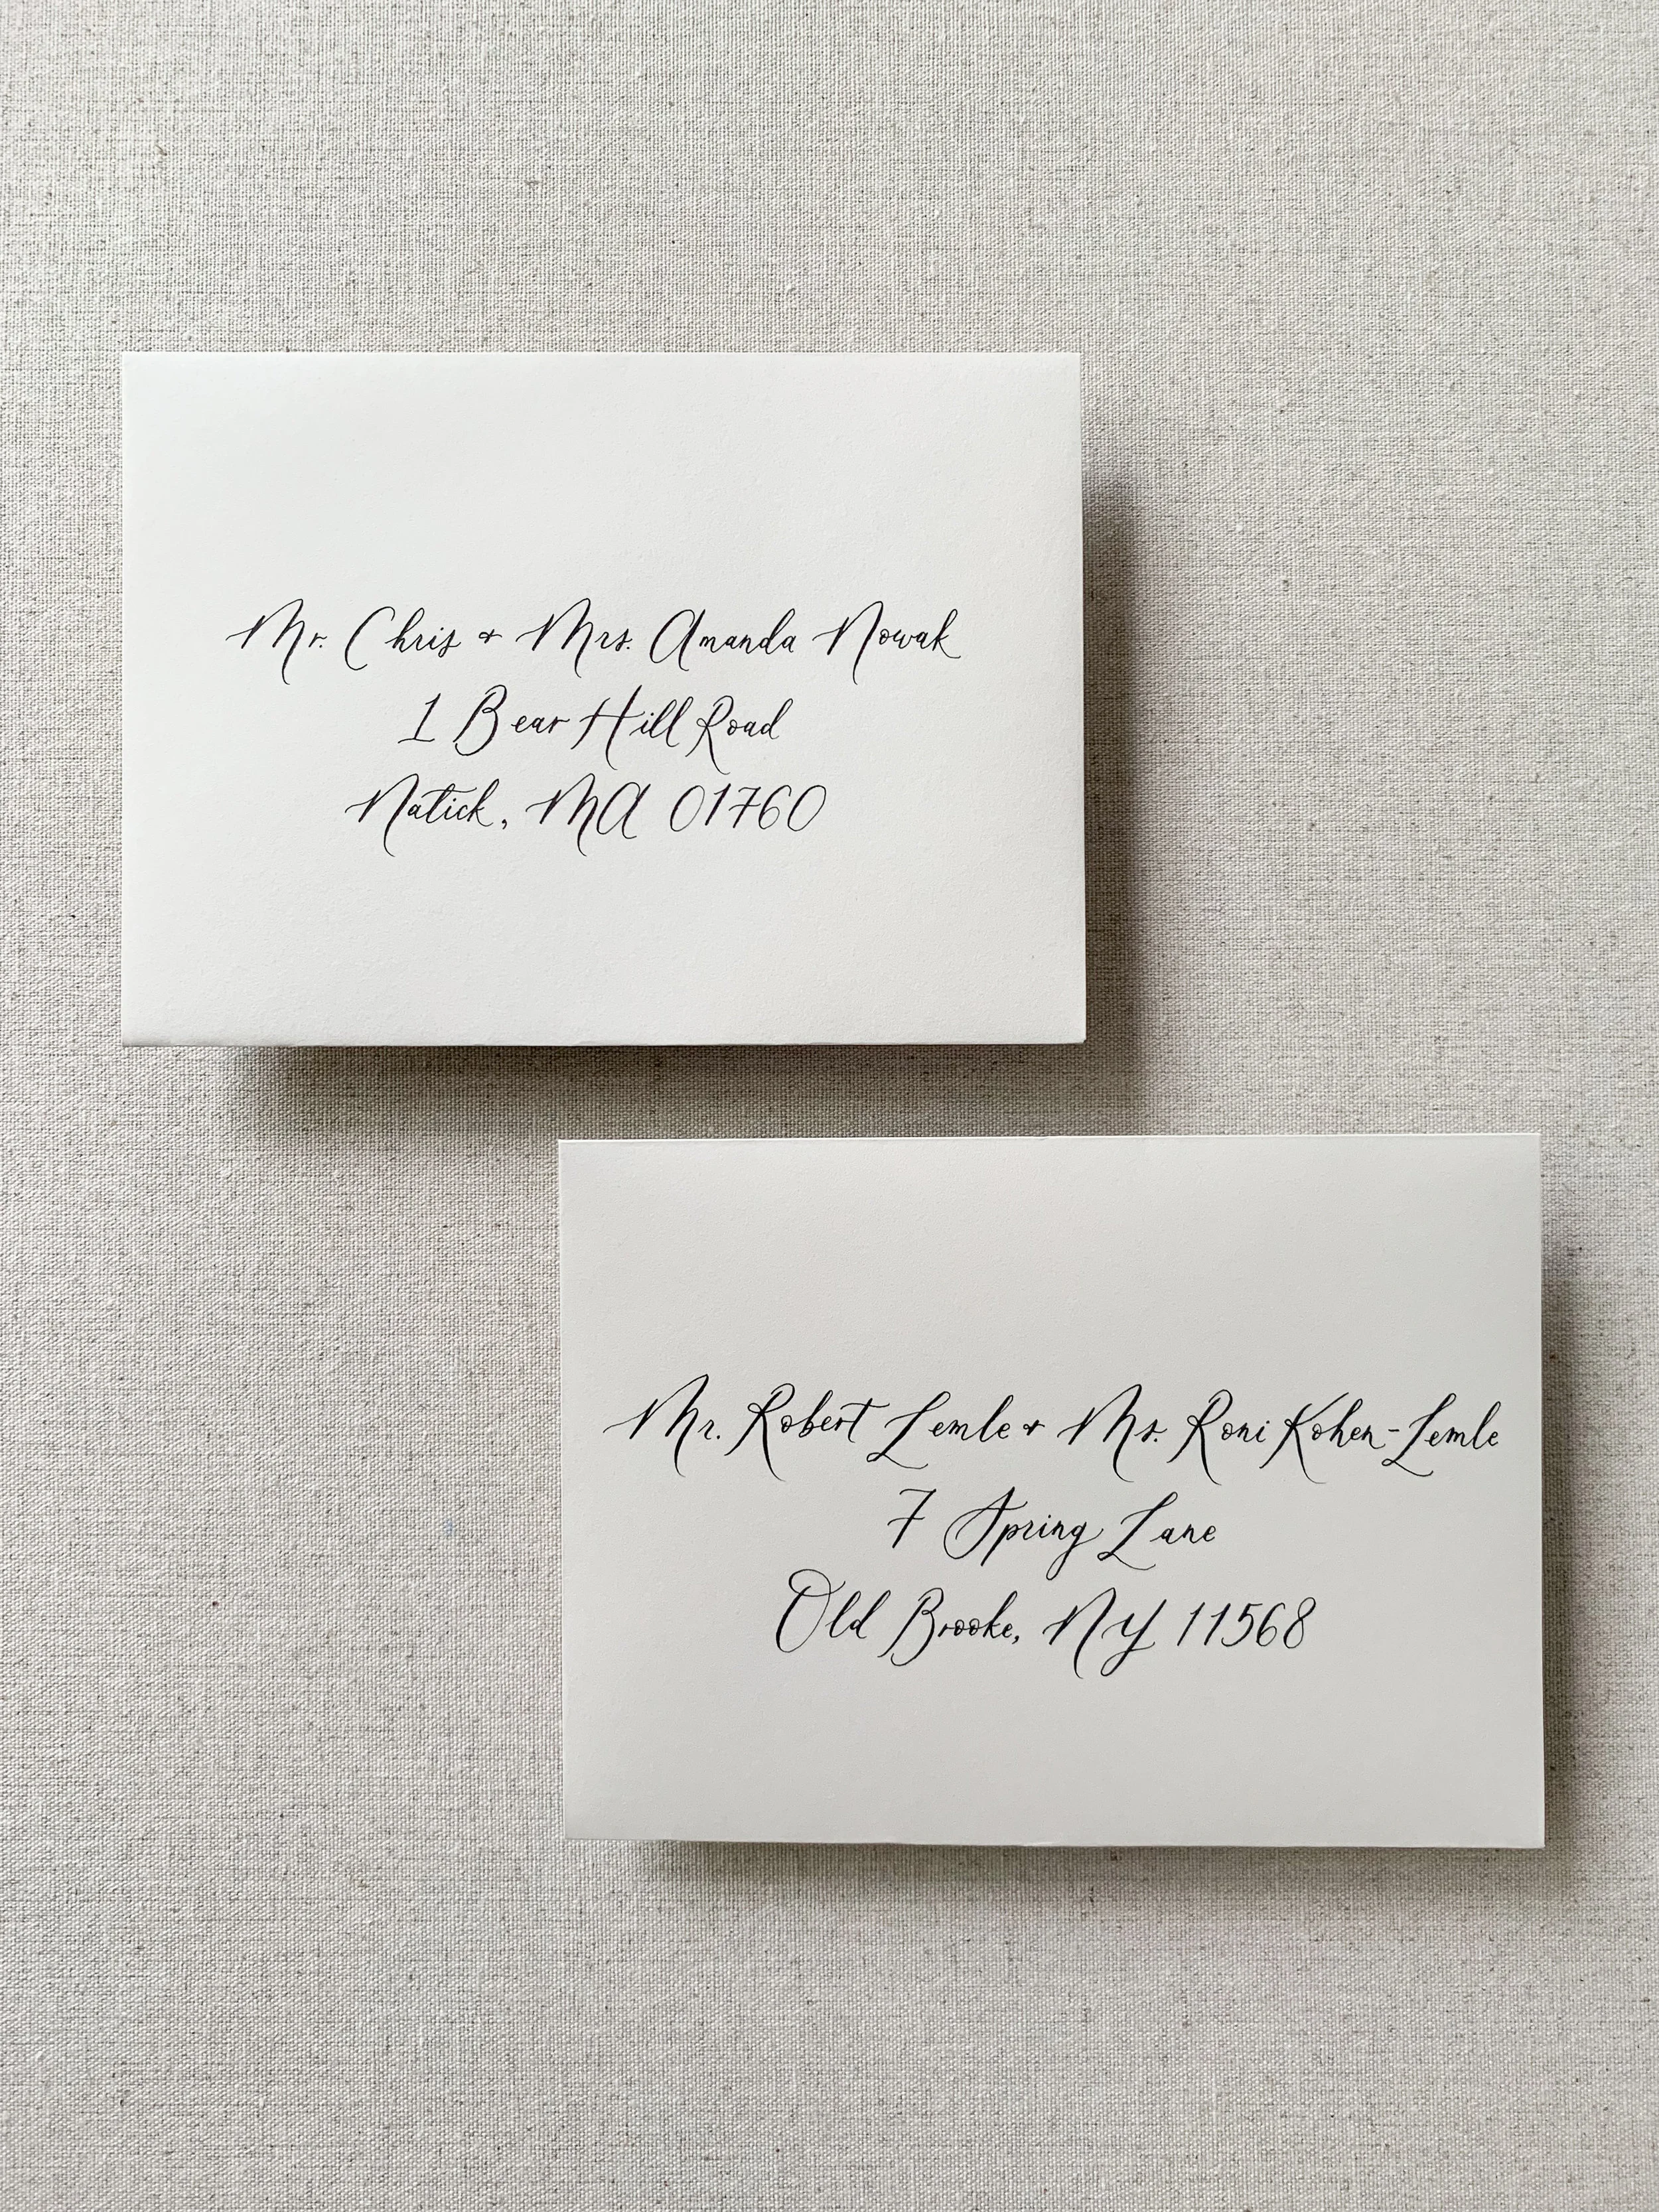 Mr. Chris & Mrs. Amanda Nowak
1 Bear Hill Road
Natick, MA 01760
Mr. Robert Lemle & Ms. Roni Kohen-Lemle
7 Spring Lane
Old Brooke, NY 11568